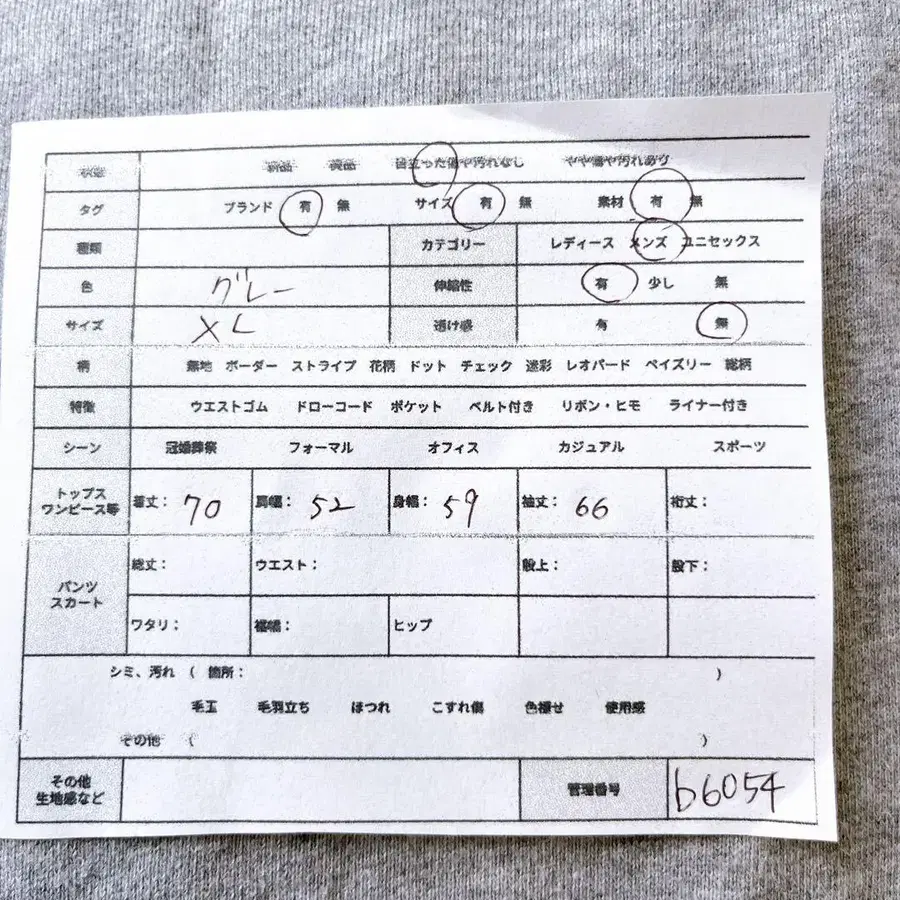 状態 新品 美品 目立った傷や汚れなし やや傷や汚れあり
タグ ブランド 有 無 サイズ 有 無 素材 有 無
種類 カテゴリー レディース メンズ ユニセックス
色 グレー 伸縮性 有 少し 無
サイズ XL 透け感 有 無
柄 無地 ボーダー ストライプ 花柄 ドット チェック 迷彩 レオパード ペイズリー 総柄
特徴 ウエストゴム ドローコード ポケット ベルト付き リボン・ヒモ ライナー付き
シーン 冠婚葬祭 フォーマル オフィス カジュアル スポーツ
トップス
ワンピース等 着丈: 70 肩幅: 52 身幅: 59 袖丈: 66 裄丈:
パンツ
スカート 総丈: ウエスト: 股上: 股下:
ワタリ: 裾幅: ヒップ
シミ、汚れ ( 箇所: )
毛玉 毛羽立ち ほつれ こすれ傷 色褪せ 使用感
その他 ( )
その他
生地感など 管理番号 b6054